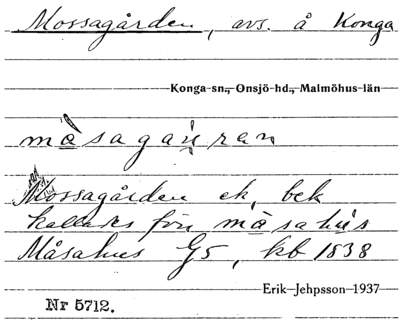 Mossagården, avs. å Konga
Konga sn., Onsjö hd., Malmöhus län
Mossagården ek, bek
kallades förr måsahus
Måsahus G5, kb 1838
Erik Jehpsson 1937
Nr 5712.